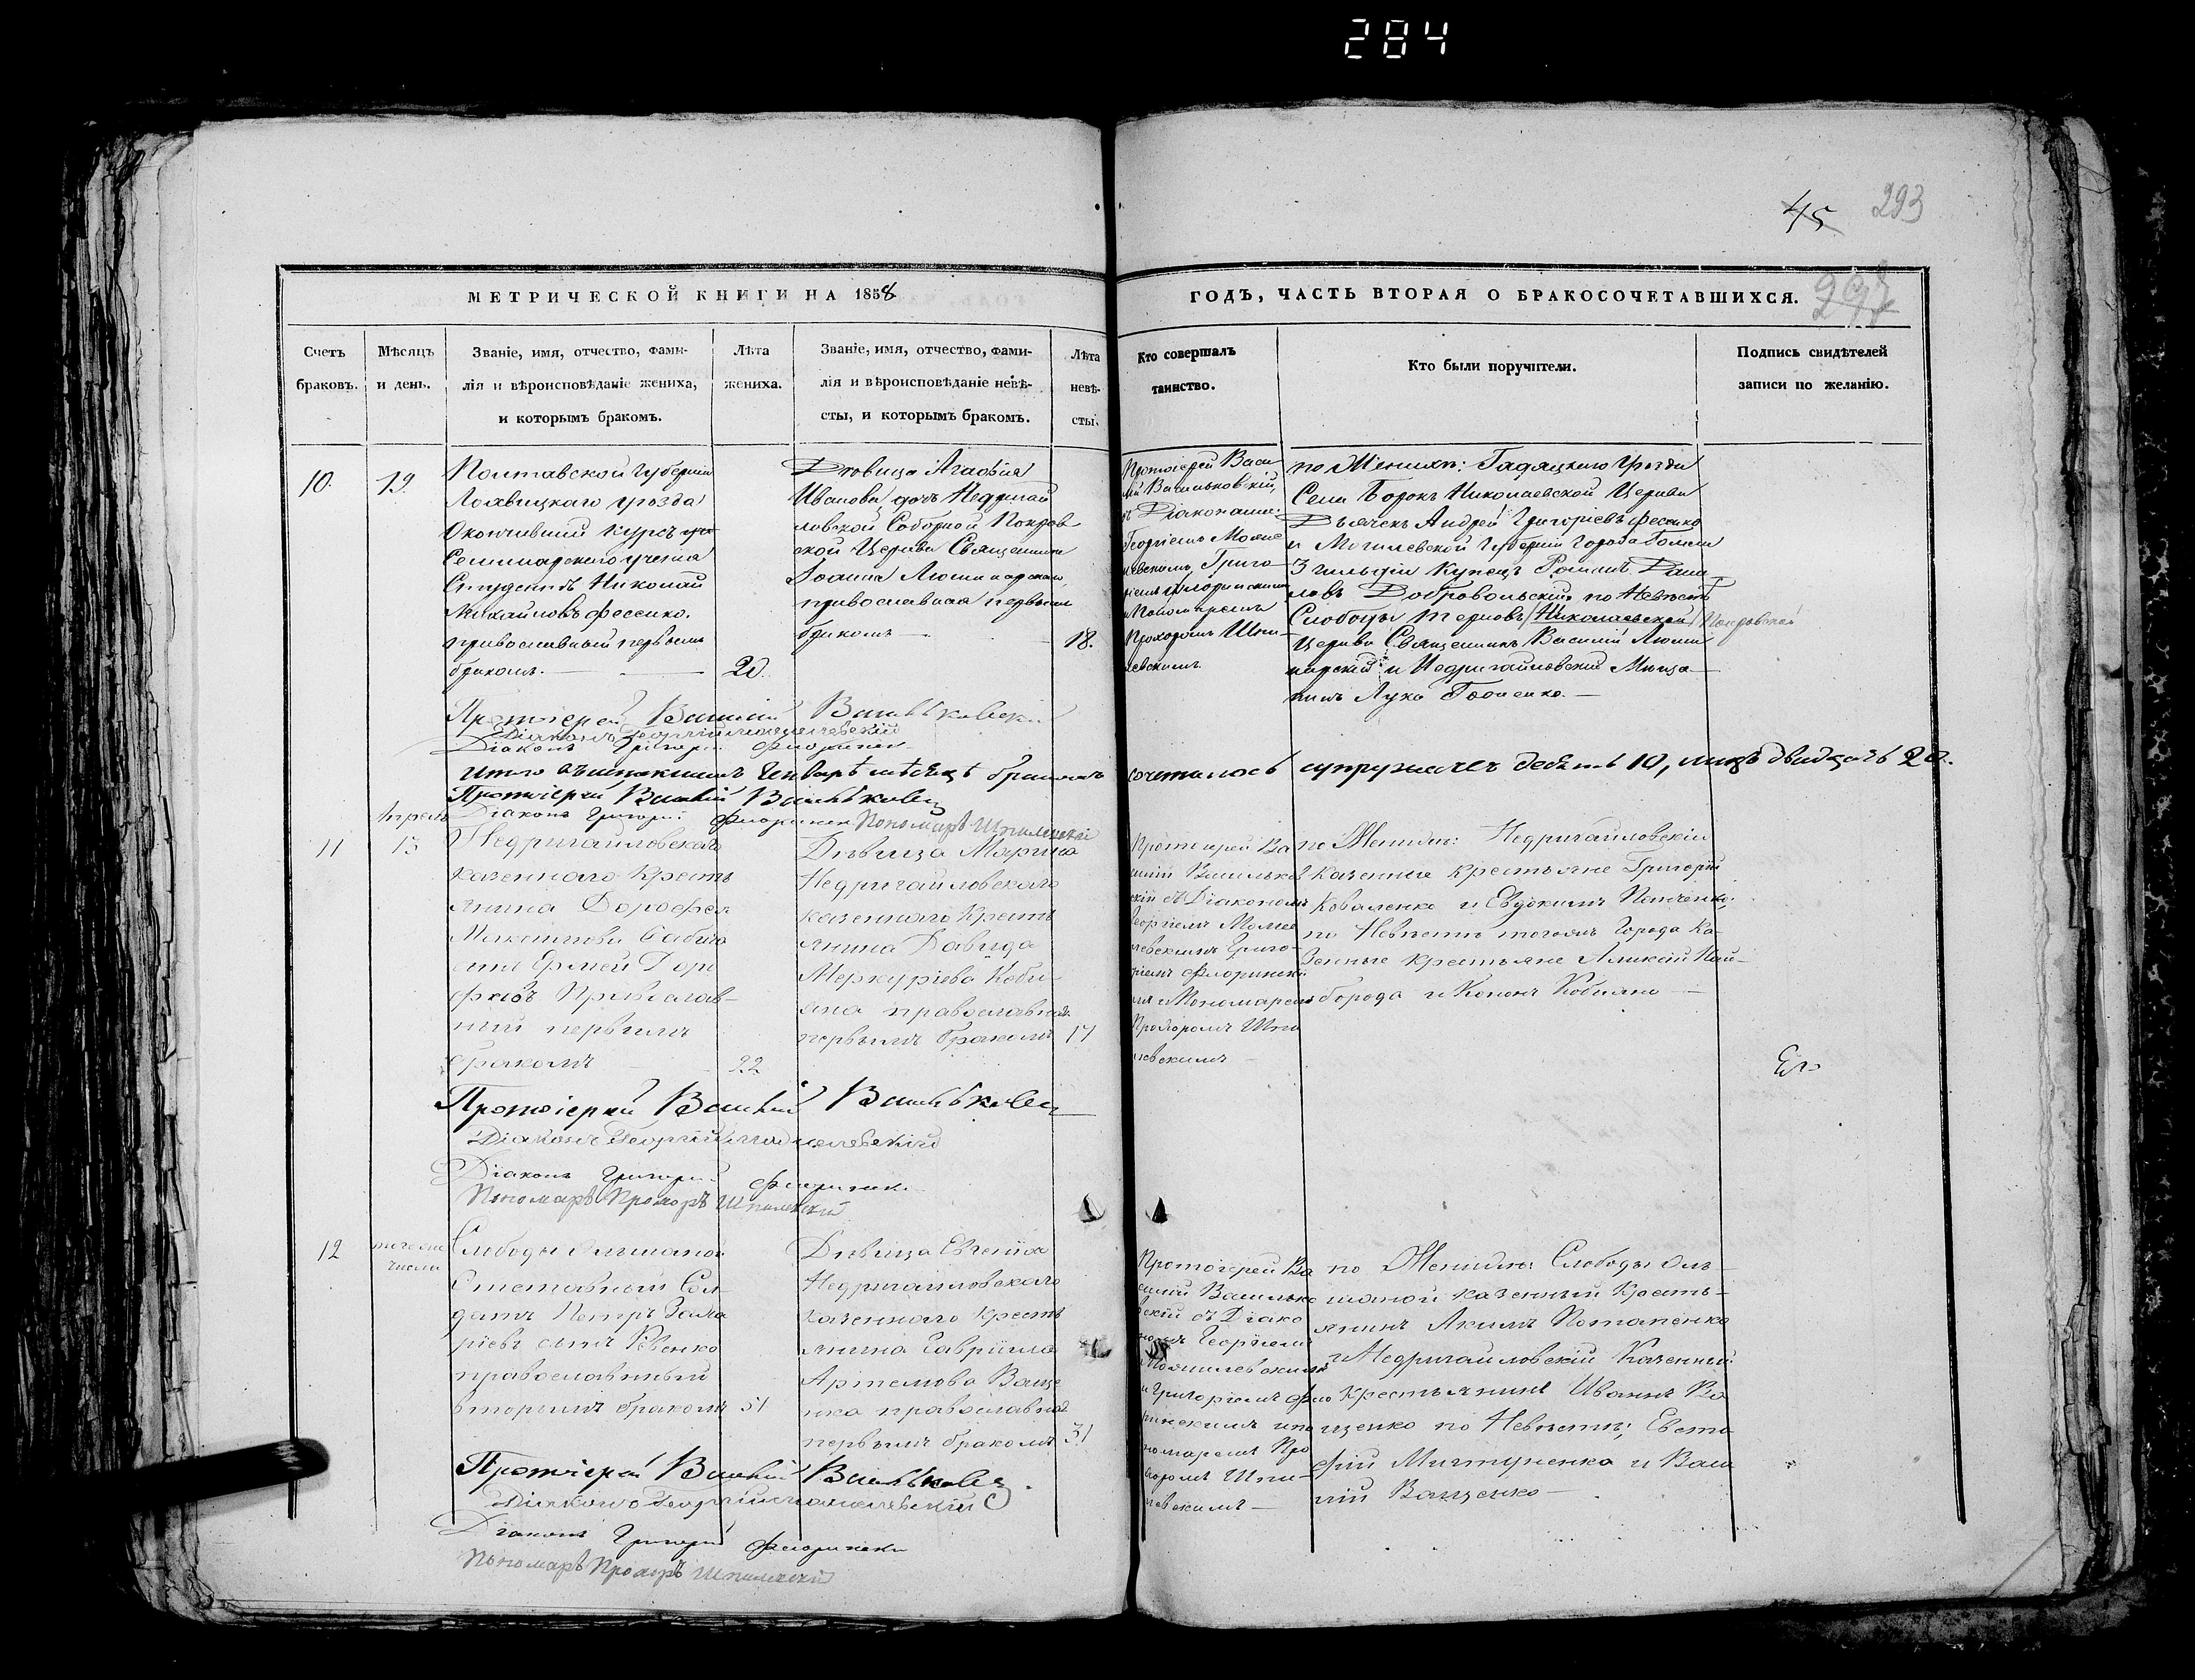 284
45 293
МЕТРИЧЕСКОЙ КНИГИ НА 1858
ГОДЪ, ЧАСТЬ ВТОРАЯ О БРАКОСОЧЕТАВШИХСЯ.
297
Счетъ браковъ.
Мѣсяцъ и день.
Званіе, имя, отчество, фами-
лія и вѣроисповѣданіе жениха,
и которымъ бракомъ.
Лѣта
жениха.
Званіе, имя, отчество, фами-
лія и вѣроисповѣданіе невѣ-
сты, и которымъ бракомъ.
Лѣта
невѣ-
сты.
Кто совершалъ
таинство.
Кто были поручители.
Подпись свидѣтелей
записи по желанію.
10.
19.
Полтавской Губерніи
Лохвицкаго уѣзда
Окончившій курсъ
Семинарскаго ученія
Студентъ Николай
Михайловъ Фесенко.
православный первымъ
бракомъ.
20.
Дѣвица Агафія
Иванова дочь Недригай
ловской Соборной Покров
ской Церкви Священника
Іоанна
православная первымъ
бракомъ
18.
Протоіерей Васи
лій Васильковскій,
съ Діаконами:
Георгіемъ
Григо
ріемъ Флоринскимъ
Пономаремъ
Прохоромъ Шпи
левскимъ
по Женихѣ: Гадяцкаго Уѣзда
Села Борокъ Николаевской Церкви
Дьячекъ Андрей Григоріевъ Фесенко
и Могилевской Губерніи Города Гомеля
3 гильдіи Купецъ Романъ Дани
ловъ Добровольскій, по Невѣстѣ
Слободы Терновъ Николаевской Покровской
Церкви Священникъ Василій
и Недригайловскій Мѣща
нинъ Лука
Протоіерей Василій Васильковскій
Діаконъ Георгій
Діаконъ Григорій Флоринскій
Итого въ Генварѣ мѣсяцѣ бракомъ сочеталось супружествъ десять 10, лицъ двадцать 20.
Протоіерей Василій Васильковскій
Діаконъ Григорій Флоринскій Пономарь Шпилевскій
11
Апрель
13
Недригайловскаго
казеннаго кресть
янина Дорофея
сынъ Ермей Доро
феевъ Православ-
ный первымъ
бракомъ
22
Дѣвица Марина
Недригайловскаго
казеннаго кресть
янина Давида
Меркуріева Коби
яка православная
первымъ бракомъ
17
Протоіерей Ва
силій Васильков
скій съ Діакономъ
Георгіемъ
Григо-
ріемъ Флорински
мъ и Пономаремъ
Прохоромъ Шпи
левскимъ
по Женихѣ: Недригайловскіи
казенные крестьяне Григорій
Коваленко и Евдокимъ Панченко;
по Невѣстѣ тогожъ Города Ка-
зенные крестьяне
борода и Кононъ Кобияка
Протоіерей Василій Васильковскій
Діаконъ Георгій
Діаконъ Григорій Флоринскій
Пономарь Прохоръ Шпилевскій
12
тогоже
числа
Слободы Ольшаной
Отставный Сол-
датъ Петръ Заха
ріевъ сынъ Ревенко
православный
вторымъ бракомъ
51
Дѣвица Евгенія
Недригайловскаго
казеннаго кресть
янина Гавріила
Артемова Ваще
нка православная
первымъ бракомъ
31
Протоіерей Ва
силій Васильков
скій съ Діако
номъ Георгіемъ
и Григоріемъ Фло
ринскимъ и по
номаремъ Про
хоромъ Шпи-
левскимъ
по Женихѣ: Слободы Оль-
шаной казенный кресть-
янинъ Акимъ Потапенко
и Недригайловскій Казенный
Крестьянинъ Иванъ Ва
щенко по Невѣстѣ; Евста
фій и Васи
лій Ващенко
Протоіерей Василій Васильковскій
Діаконъ Георгій
Діаконъ Григорій Флоринскій
Пономарь Прохоръ Шпилевскій